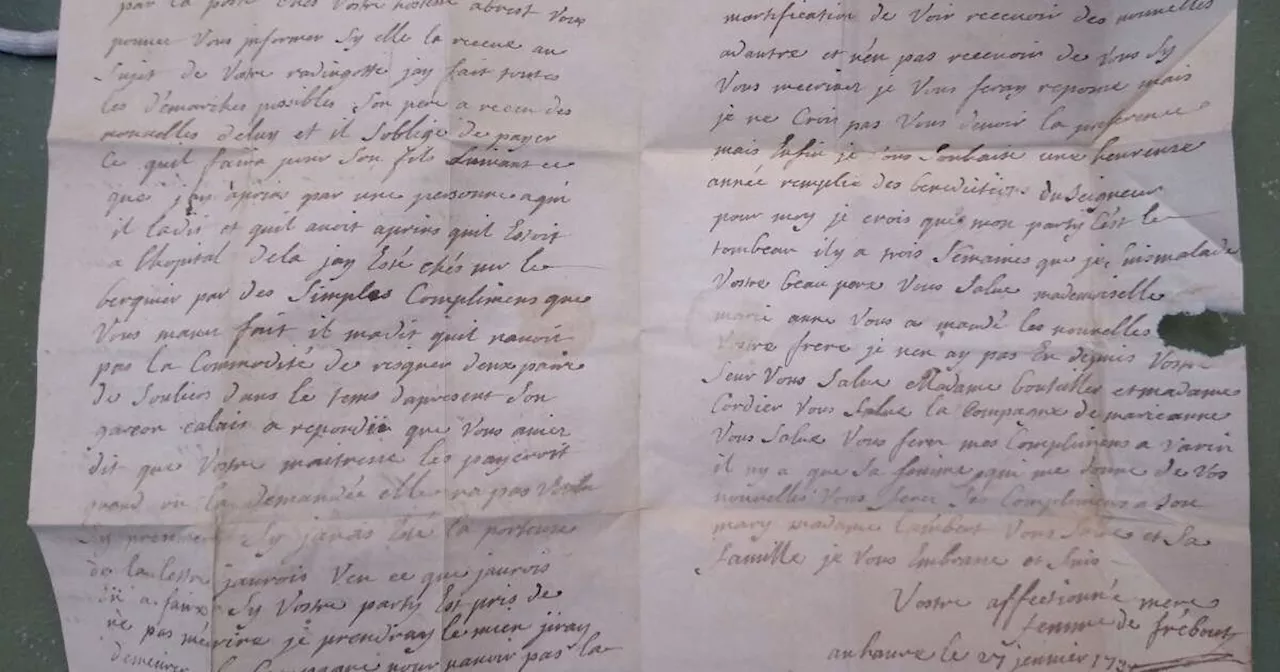 par la poste chés Vostre hostesse abrest Vous
pouvez Vous jnformer Sy elle la receue au
Sujet de Votre radingotte jay fait toutes
les démarches possibles Son pere a receu des
nouvelles deluy et il Soblige de payer
Ce quil faira pour Son fils Suivant ce
que jay apris par une personne aqui
il ladit et quil avoit apris quil Estoit
a lhopital dela jay Esté chés mr le
berquier par des Simples Complimens que
Vous mavez fait il madit quil navoit
pas la Commodité de risquer deux paire
de Souliers dans le tems dapresent Son
garcon calais a repondu que Vous aviez
dit que Vostre maitresse les payeroit
quand on la demandée elle na pas Voulu
Sy javais Esté la porteuse
de la lettre jaurois Veu ce que jaurois
Sy Vostre party Est pris de
ne pas mécrire je prendray le mien jiray
demeurer pour navoir pas la
mortification de Voir recevoir des nouvelles
adautre et nen pas recevoir de Vous Sy
Vous mecrivez je Vous feray reponse mais
je ne Crois pas Vous devoir la preference
mais Enfin je Vous Souhaite une heureuse
année remplie des benedictions du Seigneur
pour moy je crois que mon party Cest le
tombeau il y a trois Semaines que je suis malade
Vostre beau pere Vous Salue mademoiselle
marie anne Vous a mandé les nouvelles
Votre frere je nen ay pas Eu depuis Vostre
Seur Vous Salue Madame et madame
Cordier Vous Salue la Compagne de marieanne
Vous Salue Vous ferez mes Complimens a Varin
il ny a que Sa femme qui me donne de Vos
nouvelles Vous ferez Ses Complimens a Son
mary madame Lambert Vous Salue et Sa
famille je Vous Embrasse et Suis
Vostre affectionné mere
femme de
au havre le 27 jenvier